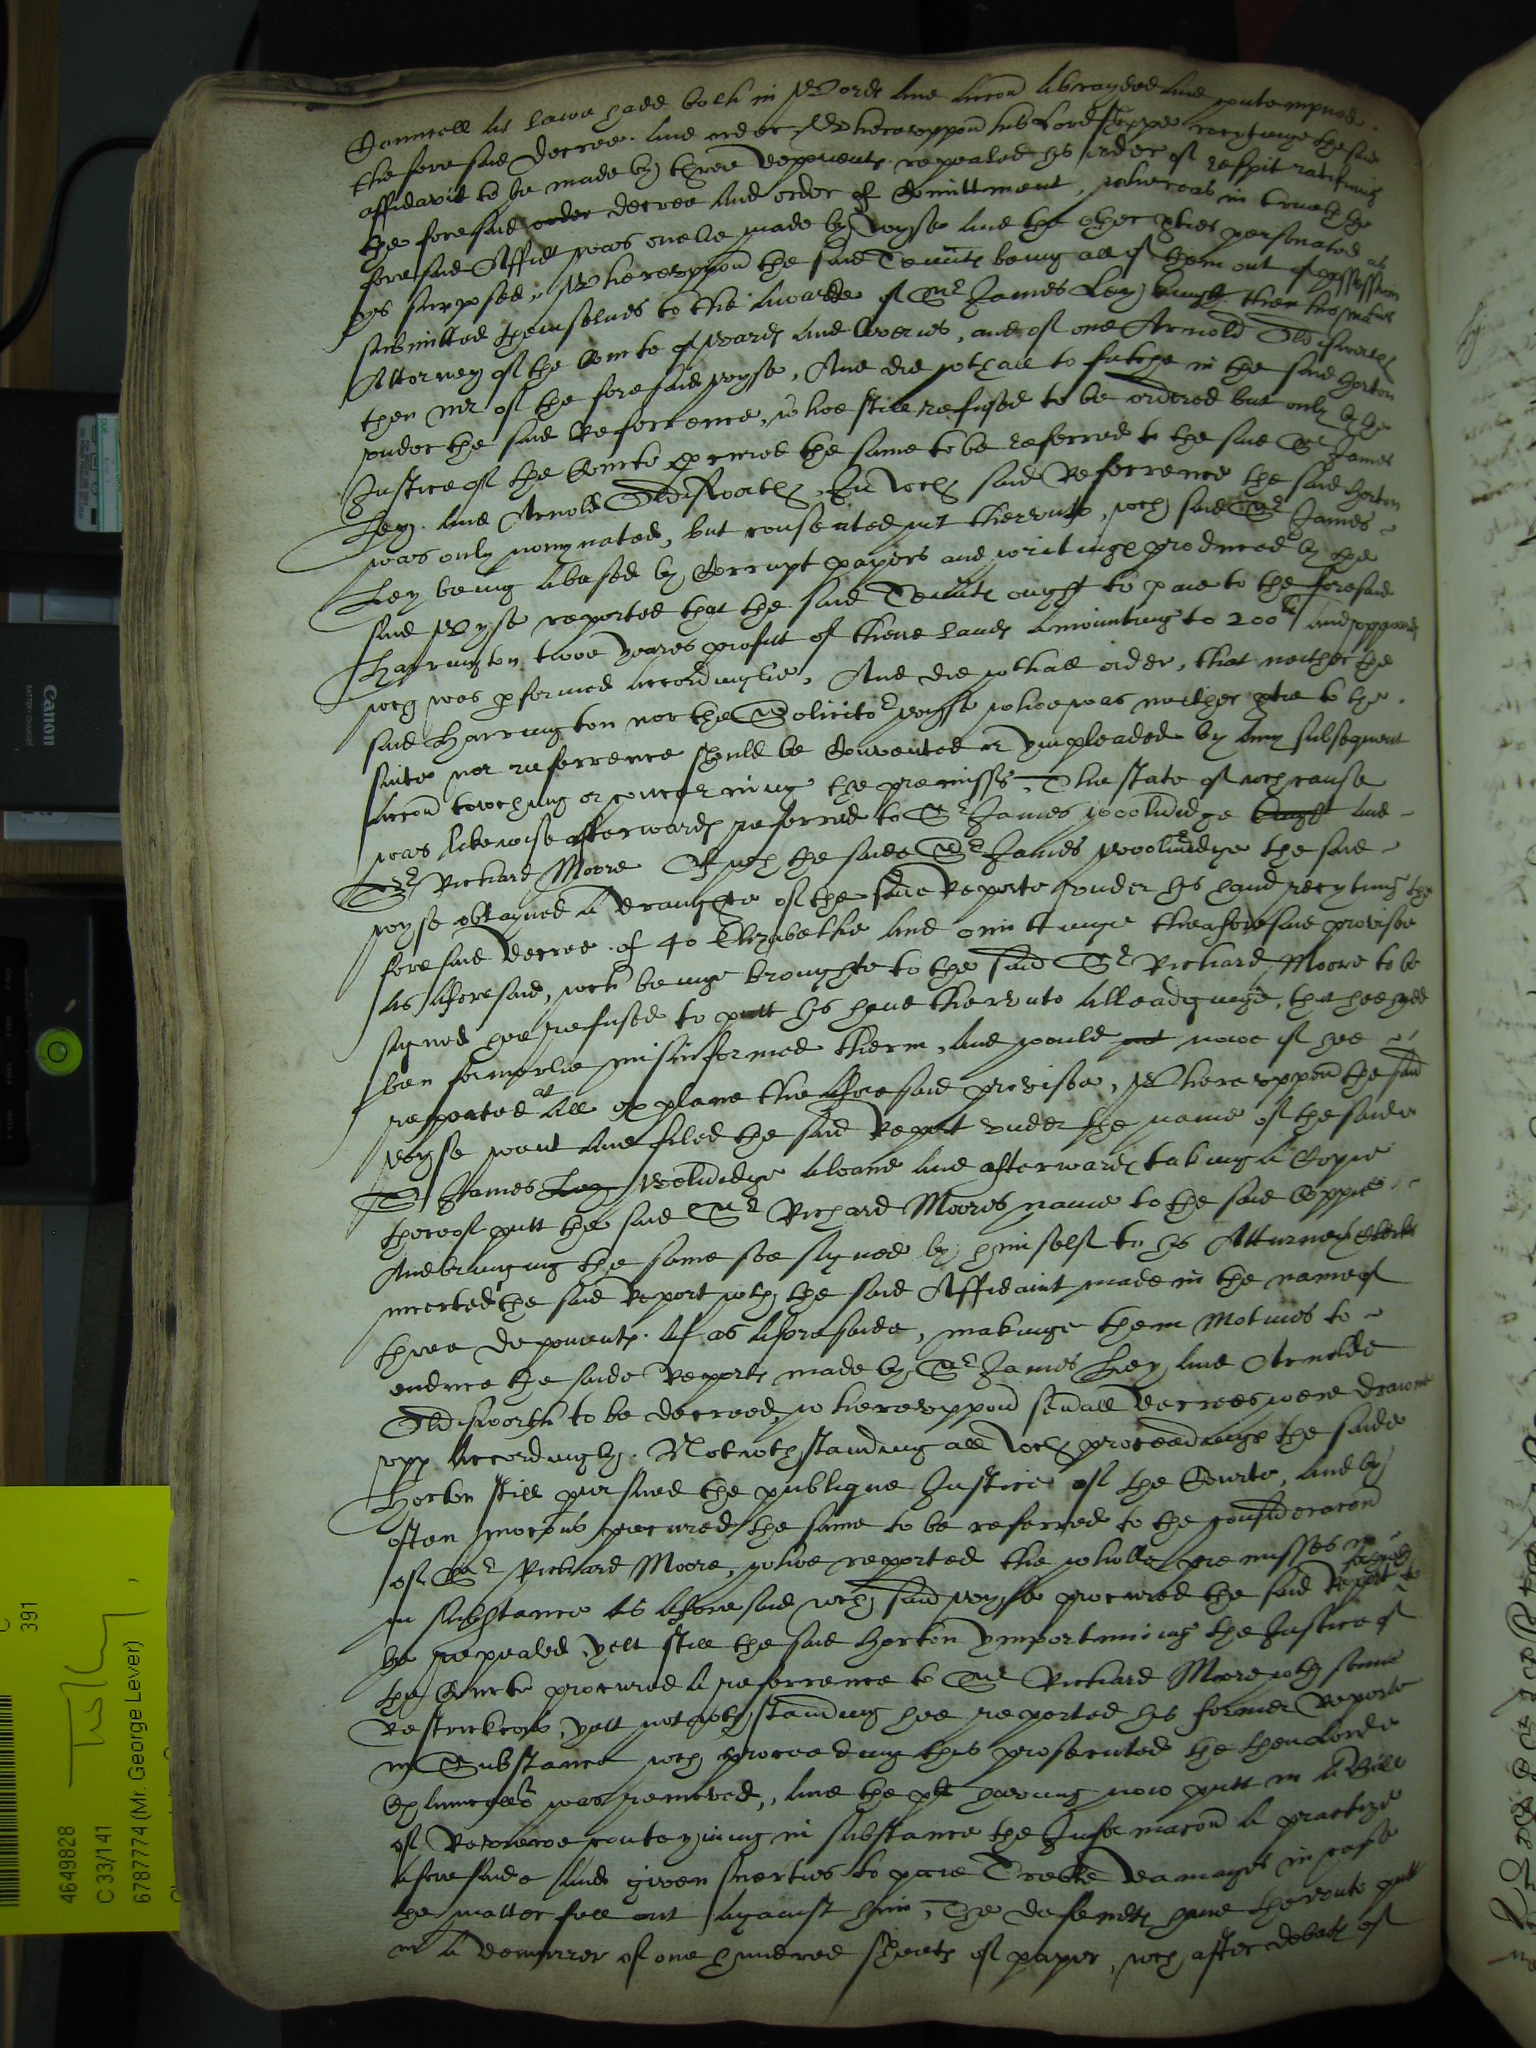 Councell at lawe hadd both in Words and accon abrayded and contempned
the foresaid decree. and order Whereuppon his Lordshippe recytinge the said
affidavit to be made by three deponents. repealed his order of respit ratifieing
the foresaid order decree and order of Comittment, whereas in truth the
foresaid Affidt was onelie made by Wyse and the other pties personated as
ys supposed. Whereuppon the said Tennts being all of them out of possession
submitted themselves to the awarde of Sr James Ley knight then his mats
Attorney of the Courte of wards and liveries, and of one Arnold Oldisworth
then mr of the foresaid wyse, And did withall to putt in the said Horton
under the said Referrence, whoe still refused to be ordered but only by the
Justice of the Courte procured the same to be referred to the said Sr James
Ley. and Arnold Oldisworth. In wch said Referrence the said Horton
was only nomynated, but consented not thereunto, wch said Sr James
Ley being abused by Corrupt papers and writings produced by the
said Wyse reported that the said Tennts ought to paie to the foresaid
Harrington twoe yeares profitt of there lands amounting to 200li
wch was pformed accordinglie. And did withall order, that neither the
said Harrington nor the Solicitor wyse whoe was neither ptie to the
suite nor referrence should be Convented or ympleaded by any subsequent
accon towching or concerning the premisses. The state of wch cause
was likewise afterwards referred to Sr James woolridge knight and
Sr Richard Moore Of wch the saide Sr James woolridge the said
wyse obtayned a draughte of the said Reporte under his hand recyting the
foresaid decree of 40 Elizabethe and omittinge the aforesaid provisoe
as aforesaid, wch beinge broughte to the said Sr Richard Moore to be
signed hee refused to putt his hand thereunto alleadginge, that hee had
ben formerlie misinformed therin, and would not nowe if hee
reported at all explane the aforesaid provisoe, Whereuppon the said
wyse went and filed the said Report under the name of the saide
Sr James Ley Wolridge aloane and afterwards taking a Copie
thereof putt the said Sr Richard Moores name to the said Coppie
And bringing the same soe signed by himself to his Atturney
the said Report with the said Affidavit made in the name of
three deponents. as aforesaide, makinge them Motives to
enduce the saide Reports made by Sr James Ley and Arnolde
Oldisworth to be decreed, whereuppon severall decrees were drawne
upp accordingly. Notwithstanding all wch proceedings the saide
Horton still pursued the publique Justice of the Courte, and by
often mocons procured the same to be referred to the consideracon
of Sr Richard Moore, whoe reported the wholle premisses
in substance as aforesaid wch said wyse procured the said Report to
be repealed, yett still the said Horton ymportuninge the Justice of
the Courte procured a referrence to Sr Richard Moore with some
Restrictions, yett notwithstanding hee reported his former Reporte
in Substance wch proceeding thus prosecuted the then Lorde
Chauncellor was removed, and the plt having now putt in a Bill
of Reveiwe conteyning in substance the Informacon & practize
aforesaide and given suerties to paie Treble damages in case
the matter fall out against him, The defendts have thereunto putt
in a demurrer of one hundred sheets of paper, wch after debate of
Canon
BATTERY CHARGER
391
4649828
C 33/141
6787774 (Mr. George Lever)